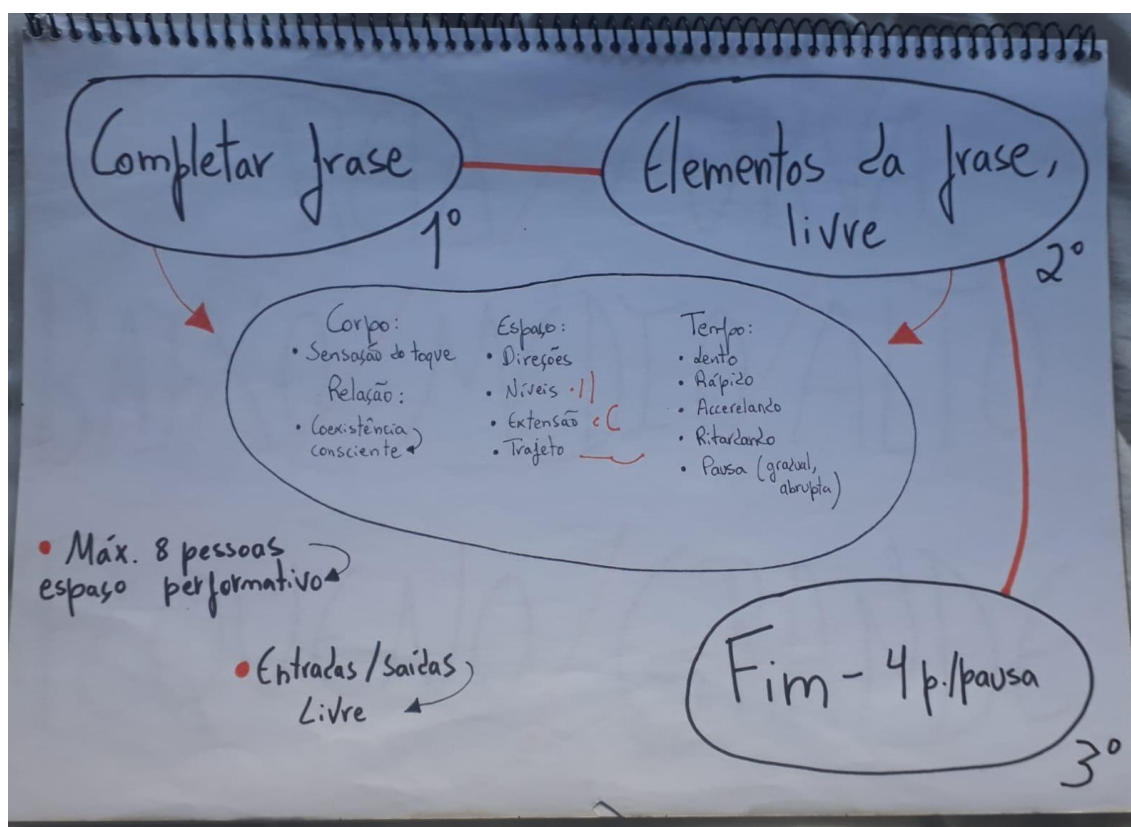 Completar frase
1º
Elementos da frase,
livre
2º
Corpo:
• Sensação do toque
Relação:
• Coexistência
consciente
Espaço:
• Direções
• Níveis
• Extensão
• Trajeto
Tempo:
• Lento
• Rápido
• Accerelando
• Ritardando
• Pausa (gradual,
abrupta)
• Máx. 8 pessoas
espaço performativo
• Entradas/saídas
Livre
Fim - 4 p./pausa
3º